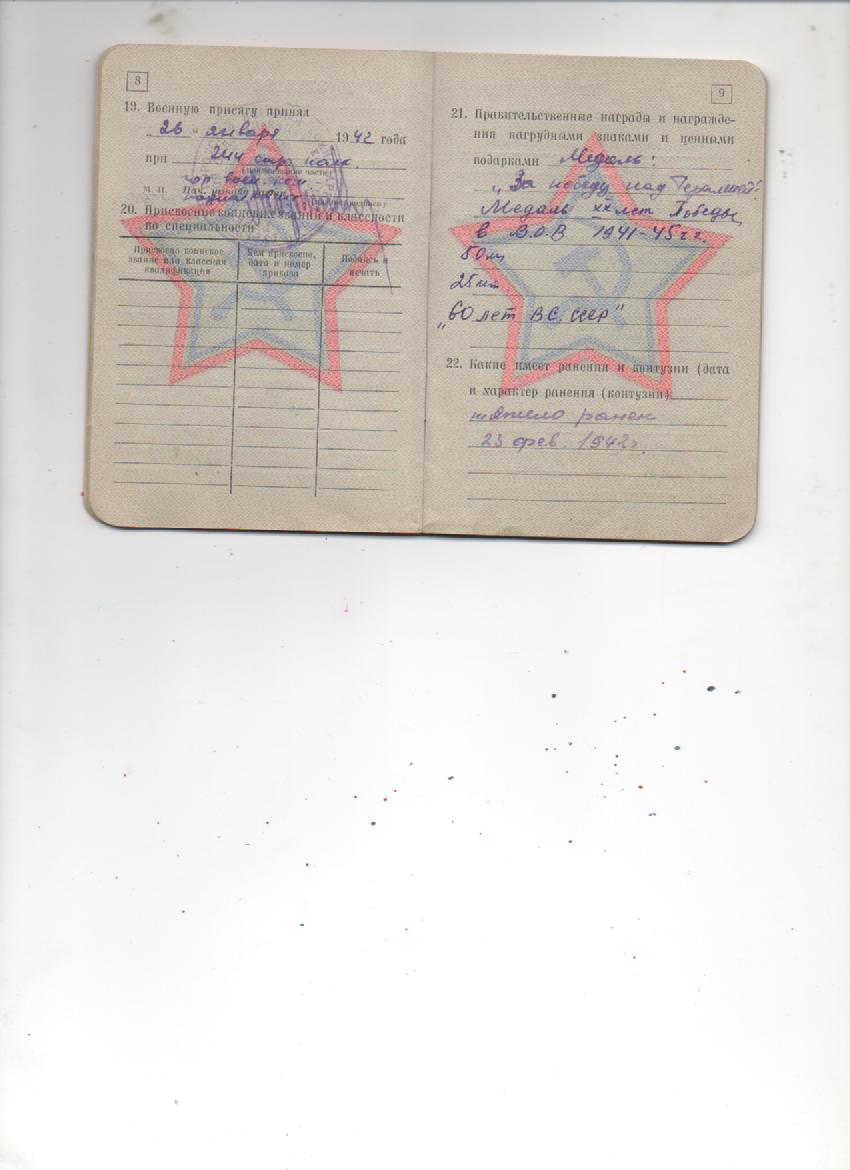 8
19. Военную присягу принял
„ 26 " января 1942 года
при 244 стр. полк.
(наименование части)
гор воен ком
м. п.
20. Присвоение воинских званий и классности
по специальности
Присвоено воинское звание или классная квалификация
Кем присвоено, дата и номер приказа
Подпись и печать
9
21. Правительственные награды и награжде-
ния нагрудными знаками и ценными
подарками Медаль:
„За победу над Германией"
Медаль XX лет Победы
в В.О.В 1941-45 г.г.
50 лет
25 лет
„60 лет ВС СССР"
22. Какие имеет ранения и контузии (дата
и характер ранения (контузии)
тяжело ранен
23 фев. 1942г.